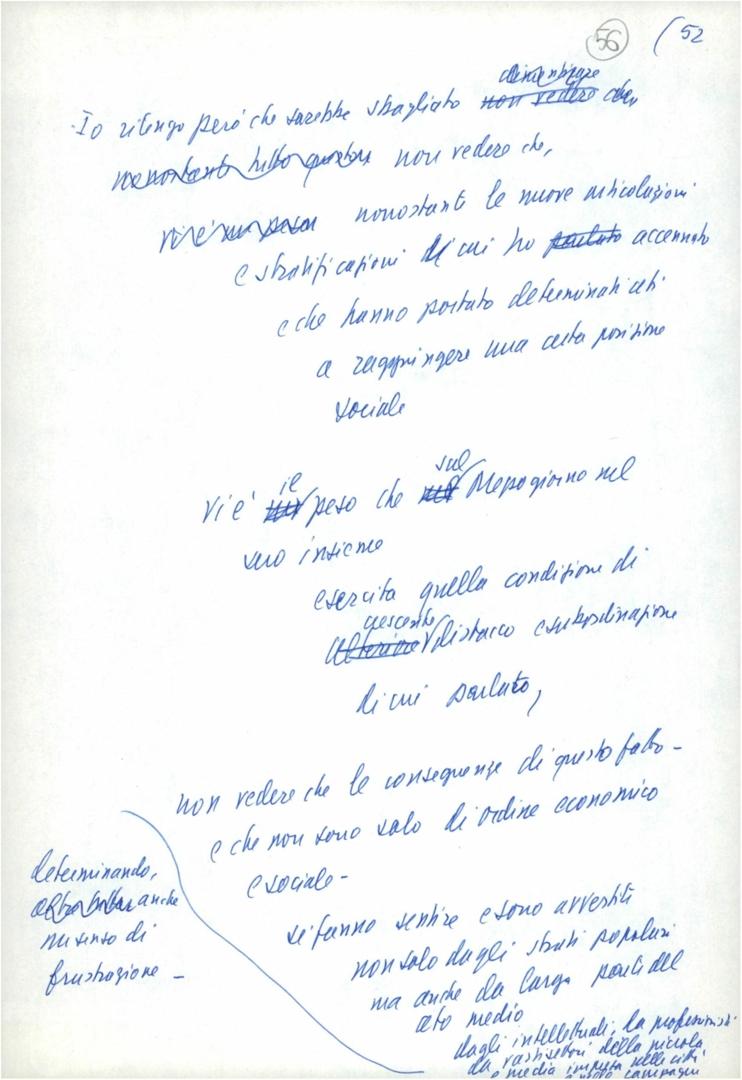 56 (52
dimenticare
Io ritengo però che sarebbe sbagliato non vedere che
nonostante tutto questo non vedere che,
vi è un peso nonostante le nuove articolazioni
e stratificazioni di cui ho parlato accennato
e che hanno portato determinati ceti
a raggiungere una certa posizione
sociale
il sul
vi è un peso che nel Mezzogiorno nel
suo insieme
esercita quella condizione di
crescente
ulteriore distacco e subordinazione
di cui parlato,
non vedere che le conseguenze di questo fatto -
e che non sono solo di ordine economico
e sociale -
si fanno sentire e sono avvertiti
non solo dagli strati popolari
ma anche da larga parti del
ceto medio
dagli intellettuali, da professionisti
da vasti settori della piccola
e media impresa nelle città
e nelle campagne
determinando,
oltre tutto anche
un senso di
frustrazione -